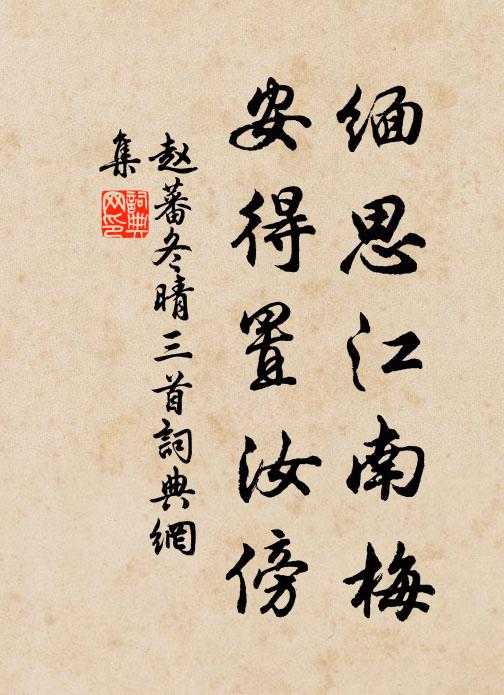 缅思江南梅
安得置汝傍
赵蕃冬晴三首詞典網
集
詞典
网印